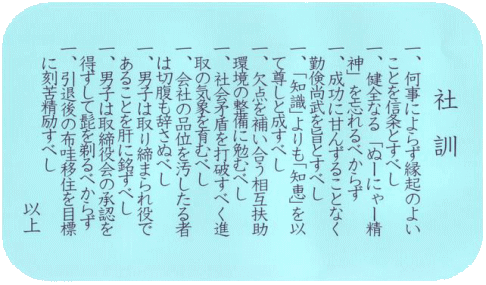 社訓
一、何事によらず縁起のよい
ことを信条とすべし
一、健全なる「ぬーにゃー精
神」を忘れるべからず
一、成功に甘んずることなく
勤倹尚武を旨とすべし
一、「知識」よりも「知恵」を以
て尊しと成すべし
一、欠点を補い合う相互扶助
環境の整備に勉むべし
一、社会矛盾を打破すべく進
取の気象を育むべし
一、会社の品位を汚したる者
は切腹も辞さぬべし
一、男子は取り締まられ役で
あることを肝に銘すべし
一、男子は取締役会の承認を
得ずして髭を剃るべからず
一、引退後の布哇移住を目標
に刻苦精励すべし
以上